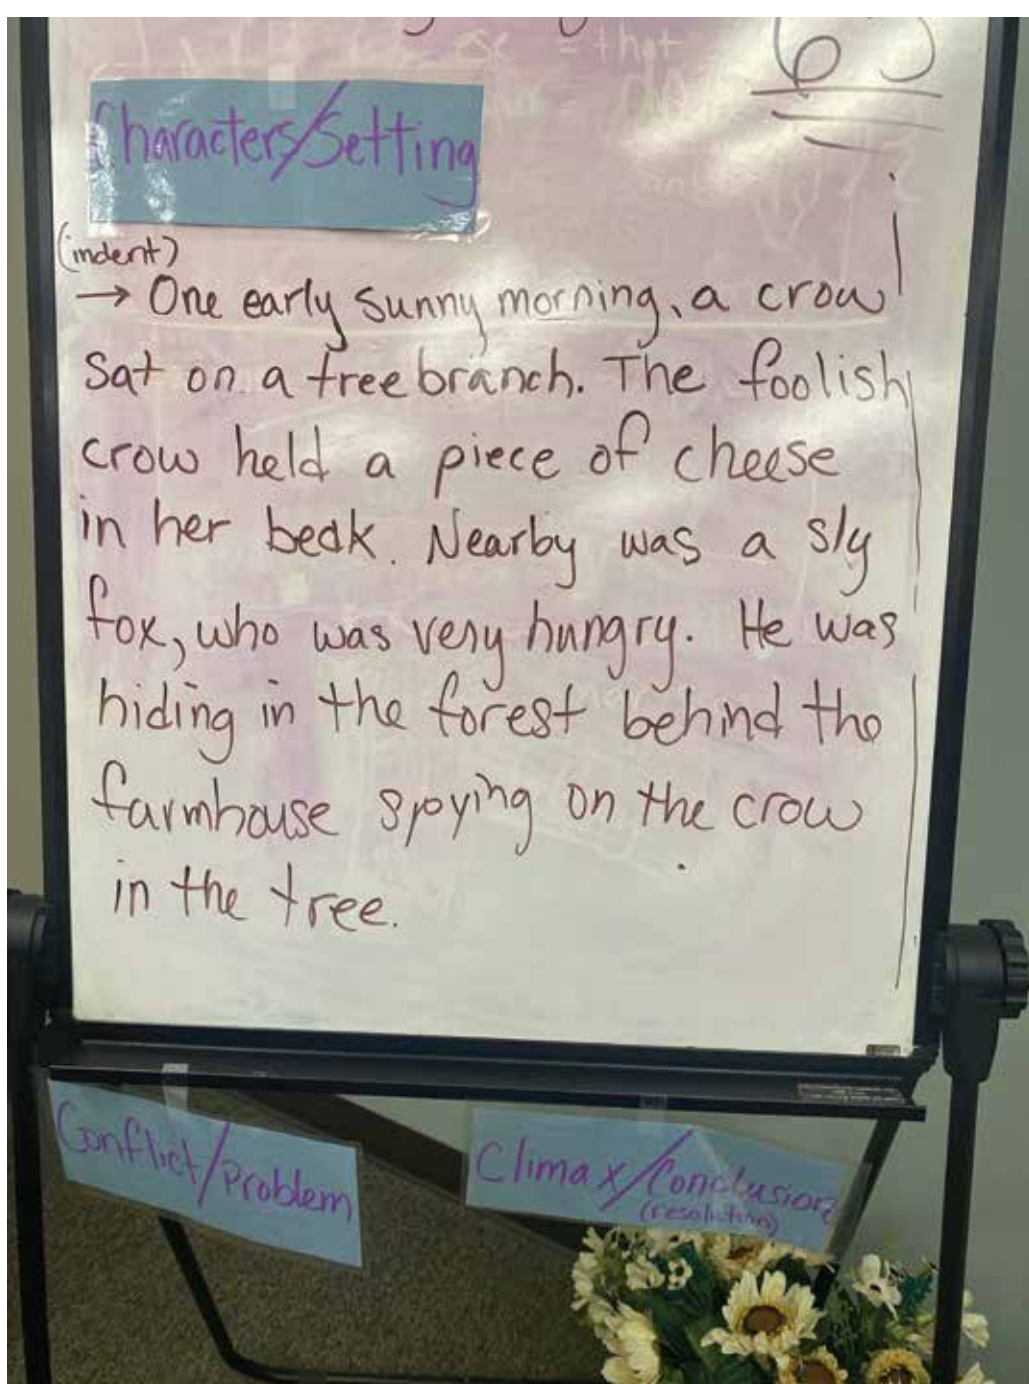 63
Characters/Setting
(indent)
→ One early sunny morning, a crow
sat on a tree branch. The foolish
crow held a piece of cheese
in her beak. Nearby was a sly
fox, who was very hungry. He was
hiding in the forest behind the
farmhouse spying on the crow
in the tree.
Conflict/Problem
Climax/Conclusion
(resolution)